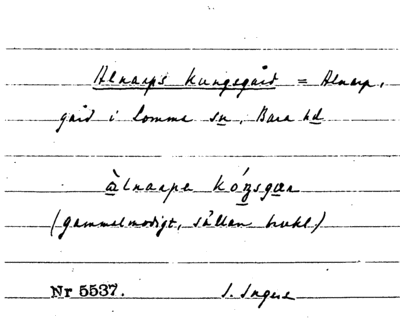 Alnarps kungsgård = Alnarp,
gård i Lomma sn, Bara hd
àlnarps kóŋsgɑr
(gammelmodigt, sällan brukl.)
Nr 5537. S. Ingers